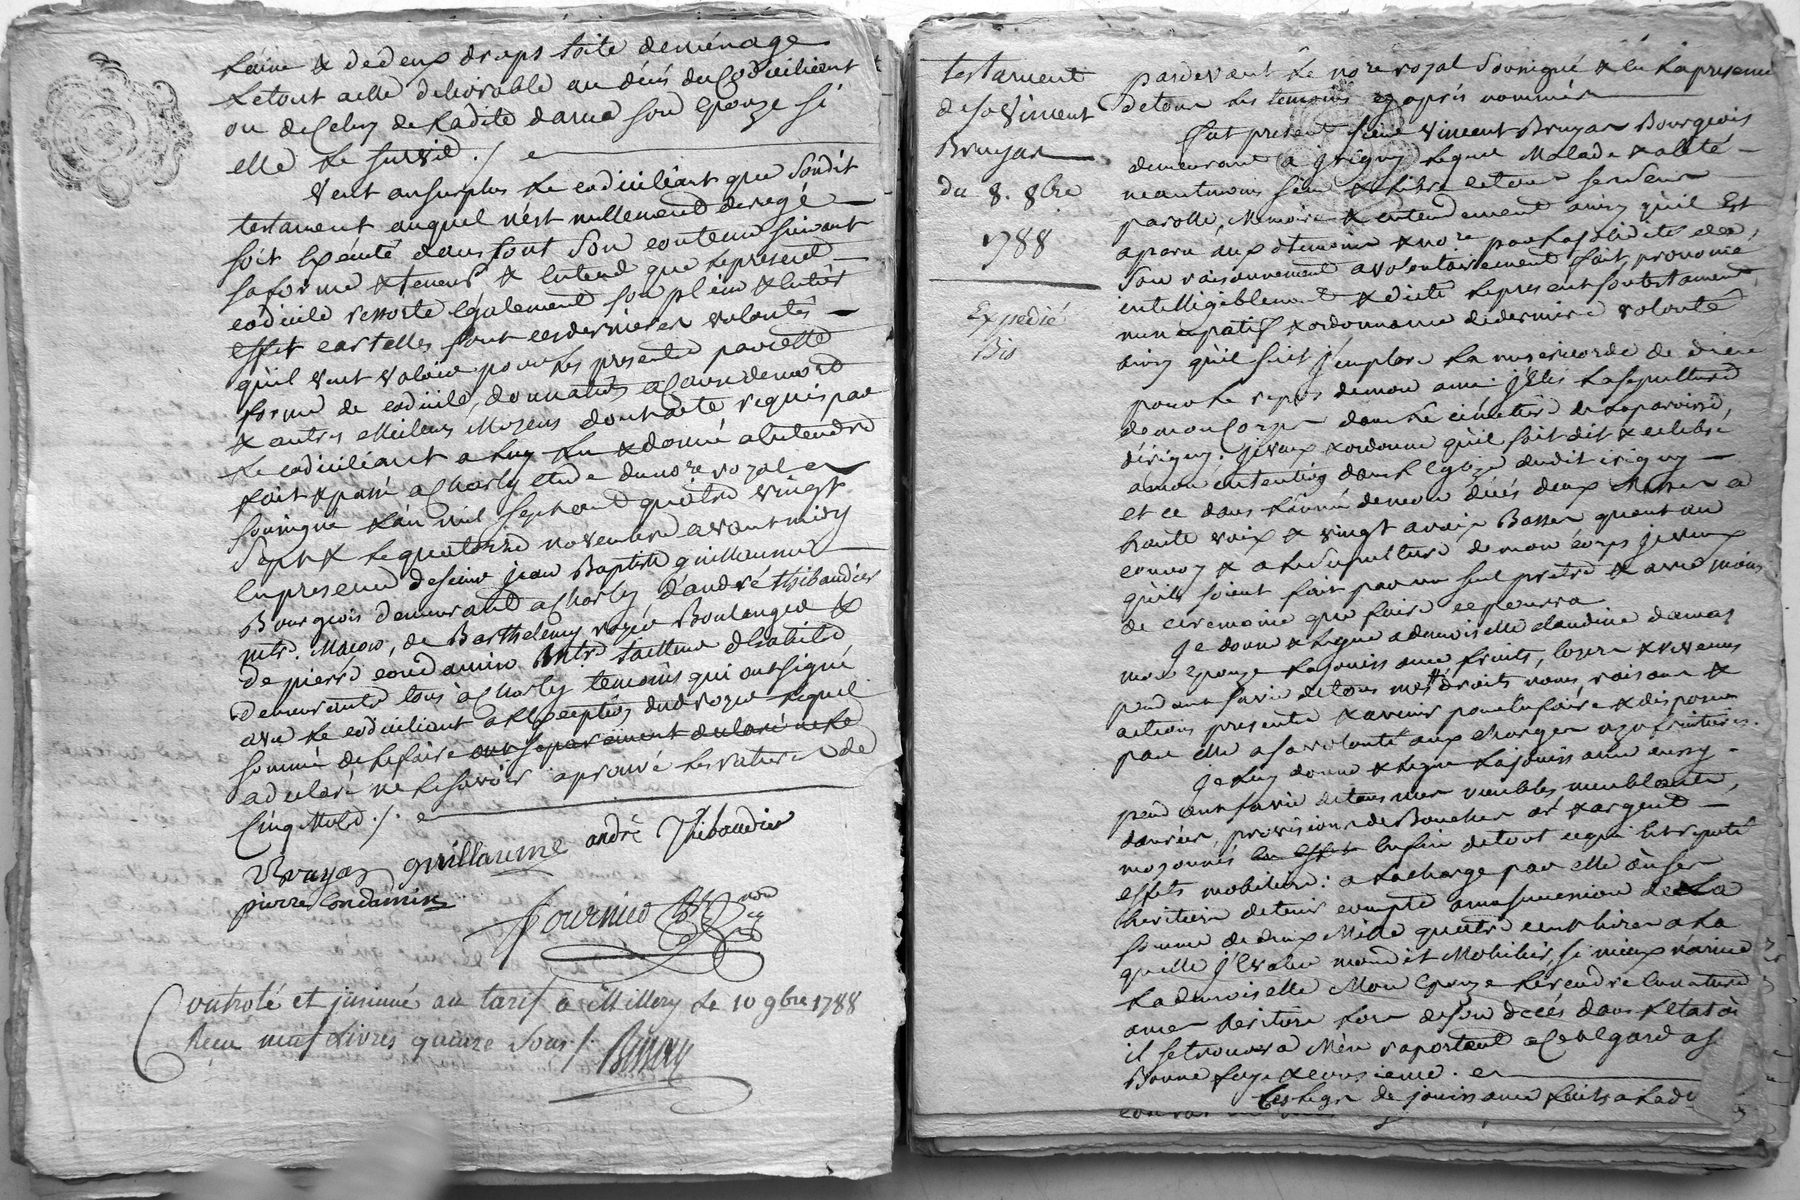 Laine & de deux draps toile de ménage
Le tout a elle délivrable au décés du Codiciliant
ou de Celuy de Ladite dama son Epouze si
elle Le survit ./.
Veut au surplus Le codiciliant que Sondit
testament auquel n'est nullement derogé
soit Exécuté dans tout Son contenu suivant
sa forme & teneur & Entend que Le présent
codicile ressorte Egalement son plein & entier
effet car telles sont ses dernieres volontés
qu'il veut valoir pour les presentes par cette
forme de codicile, donnation a Cause de mort
& autres Meileurs Moyens dont acte requis par
Le codiciliant a Luy Lu & donné a Entendre
fait & passé a Charly Etude du no.re royal
soussigné L'an mil sept cent quatre vingt
Sept & Le quatorze novembre avant midy
En presence de sieur jean Baptiste guillaume
Bourgeois demeurant a Charly d'andré thibaudier
mtr. Macon, de Barthelemy rozier Boulanger &
de pierre condamin Mtre tailleur d'habits
demeurants tous à Charly temoins qui ont signé
avec Le codiciliant a L'Exception dud rozier Lequel
sommé de Le faire
a declaré ne Le savoir aprouvé Les ratures de
Cinq Mots ./.
Bruyas guillaume andré Thibaudier
pierre Condamin
fournier
Controlé et insinué au tarif a Millery Le 10 9bre 1788
Reçu neuf Livres quinze Sous ./.
testament
de Sr Vincent
Bruyas
du 8. 8bre
1788
Expedié
Bis
Pardevant Le no.re royal Soussigné & En La presence
de tous Les temoins cy après nommés
fut present sieur Vincent Bruyas Bourgeois
demeurant a Irigny Lequel Malade & alité
neantmoins sain & Libre de tous ses sens
parolle, Memoire & entendement ainsy qu'il Est
aparu aux d temoins & no.re par La solidité de
Son raisonnement a volontairement fait prononcé
intelligiblement & dicté Le present son testament
nuncupatif & ordonnance de derniere volonté
ainsy qu'il suit j'implore La misericorde de dieu
pour Le repos de mon ame: j'Elis La sepulture
de mon Corps dans Le cimetiere de La paroisse
d'irigny: je veux & ordonne qu'il soit dit & celebré
a mon intention dans L'Eglize dudit irigny
et ce dans L'année de mon décés deux Messes a
haute voix & vingt a voix Basses quant au
convoy & a La Sepulture de mon corps je veux
qu'ils soient fait par un seul pretre & avec moins
de ceremonie que faire ce pourra
Je donne & Legue a demoiselle claudine damas
mon Epouze La jouissance fruits, loyers & revenus
pendant sa vie de tous mes droits noms, raisons &
actions presents & avenir pour En faire & disposer
par elle a sa volonté aux charges uzufruitieres.
Je Luy donne & Legue La jouissance aussy
pendant sa vie de tous mes meubles meublants,
danrées, provisions de Bouches or & argent
monnoyés Enfin de tout ce qui Est reputé
effets mobiliers: a La charge par elle ou ses
heritiers de tenir compte a ma succession de La
somme de deux Mille quatre cent livres a La
quelle j'Evalue mondit Mobilier, si mieux n'aime
La demoiselle Mon Epouze Le rendre En nature
a mes heritiers Lors de son décés dans L'Etat où
il se trouvera M'en raportant a Cet Egard a sa
Bonne foye & conscience.
Les Legs de jouissance faits a Lad